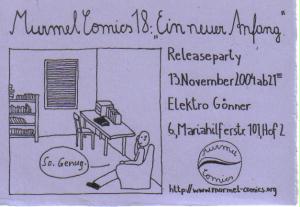 Murmel Comics 18: „Ein neuer Anfang“
Releaseparty
13. November 2004 ab 21ʰ
Elektro Gönner
6, Mariahilferstr. 101, Hof 2
So. Genug.
murmel
comics
http://www.murmel-comics.org